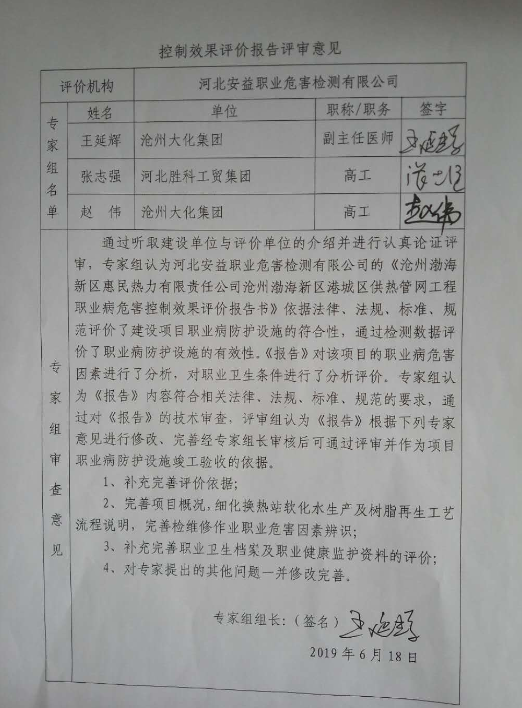 控制效果评价报告评审意见
评价机构 河北安益职业危害检测有限公司
专家组名单 姓名 单位 职称/职务 签字
王延辉 沧州大化集团 副主任医师
张志强 河北胜科工贸集团 高工
赵 伟 沧州大化集团 高工 赵伟
专家组审查意见
通过听取建设单位与评价单位的介绍并进行认真论证评
审，专家组认为河北安益职业危害检测有限公司的《沧州渤海
新区惠民热力有限责任公司沧州渤海新区港城区供热管网工程
职业病危害控制效果评价报告书》依据法律、法规、标准、规
范评价了建设项目职业病防护设施的符合性，通过检测数据评
价了职业病防护设施的有效性。《报告》对该项目的职业病危害
因素进行了分析，对职业卫生条件进行了分析评价。专家组认
为《报告》内容符合相关法律、法规、标准、规范的要求，通
过对《报告》的技术审查，评审组认为《报告》根据下列专家
意见进行修改、完善经专家组长审核后可通过评审并作为项目
职业病防护设施竣工验收的依据。
1、补充完善评价依据；
2、完善项目概况，细化换热站软化水生产及树脂再生工艺
流程说明，完善检维修作业职业危害因素辨识；
3、补充完善职业卫生档案及职业健康监护资料的评价；
4、对专家提出的其他问题一并修改完善。
专家组组长：（签名）
2019 年 6 月 18 日